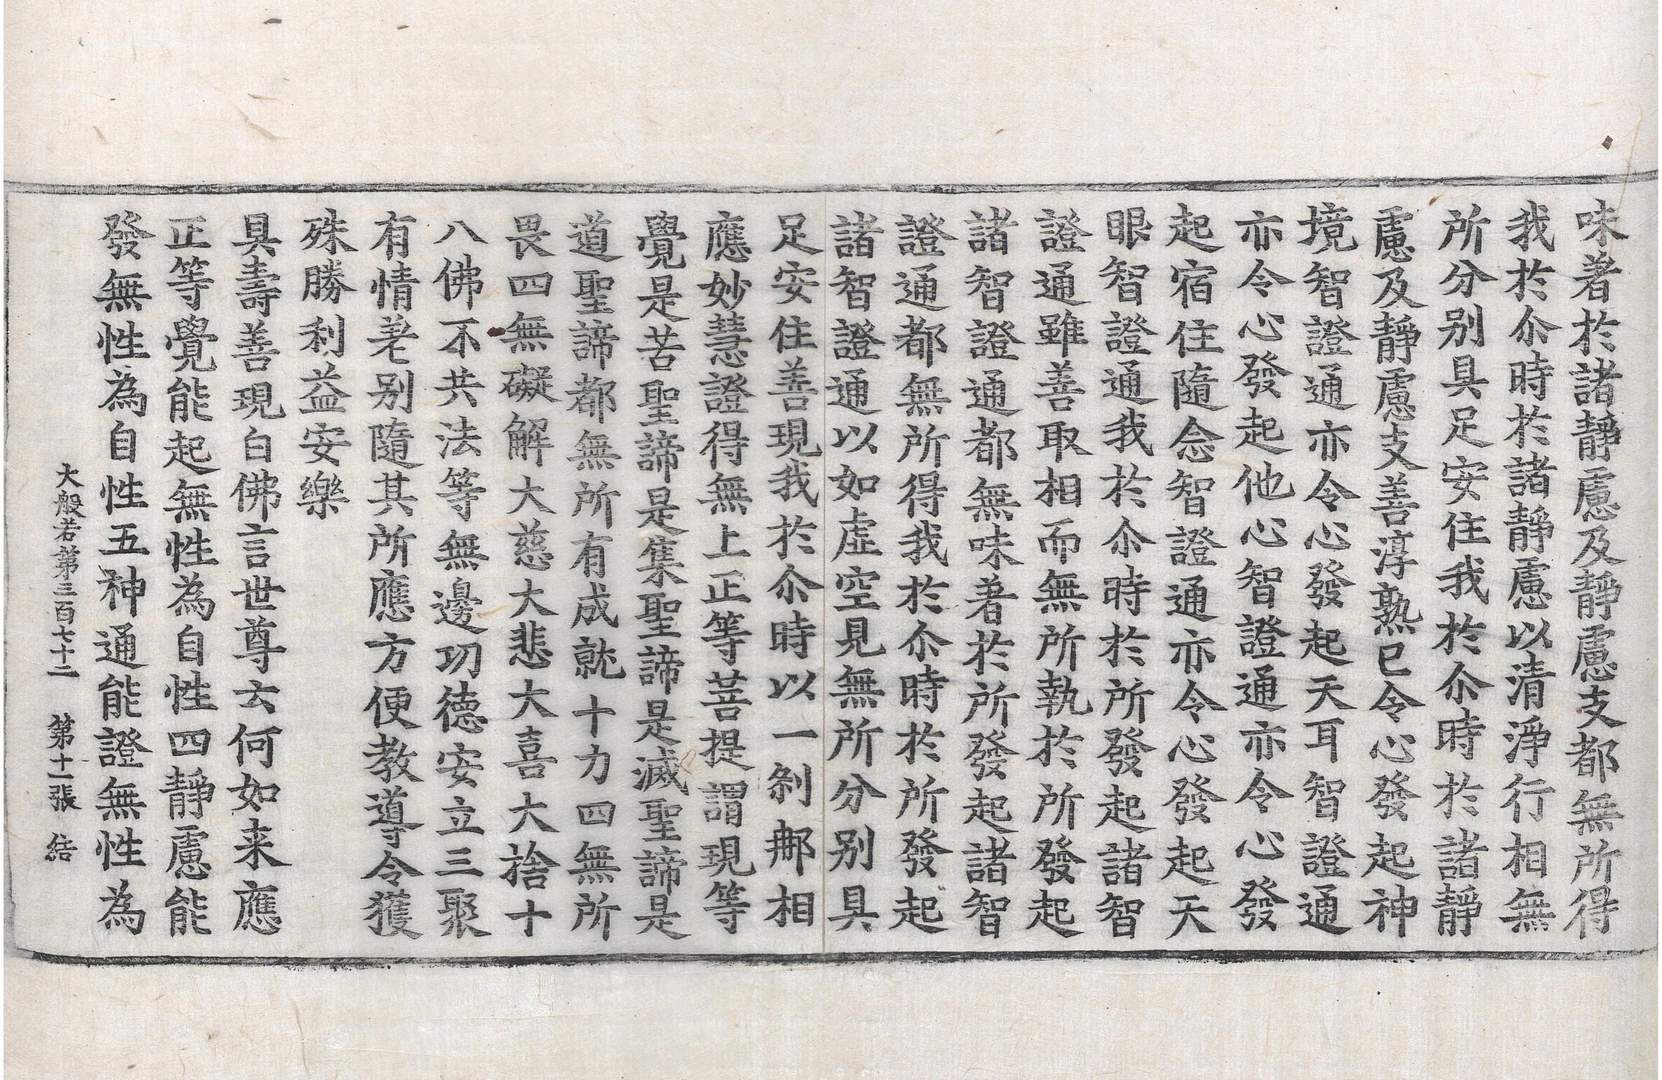 味著於諸靜慮及靜慮支都無所得
我於尒時於諸靜慮以清淨行相無
所分别具足安住我於尒時於諸靜
慮及靜慮支善淳熟已令心發起神
境智證通亦令心發起天耳智證通
亦令心發起他心智證通亦令心發
起宿住隨念智證通亦令心發起天
眼智證通我於尒時於所發起諸智
證通雖善取相而無所執於所發起
諸智證通都無味著於所發起諸智
證通都無所得我於尒時於所發起
諸智證通以如虛空見無所分别具
足安住善現我於尒時以一剎那相
應妙慧證得無上正等菩提謂現等
覺是苦聖諦是集聖諦是滅聖諦是
道聖諦都無所有成就十力四無所
畏四無礙解大慈大悲大喜大捨十
八佛不共法等無邊功德安立三聚
有情差别隨其所應方便教導令獲
殊勝利益安樂
具壽善現白佛言世尊云何如来應
正等覺能起無性為自性四靜慮能
發無性為自性五神通能證無性為
大般若第三百七十二 第十一張 結